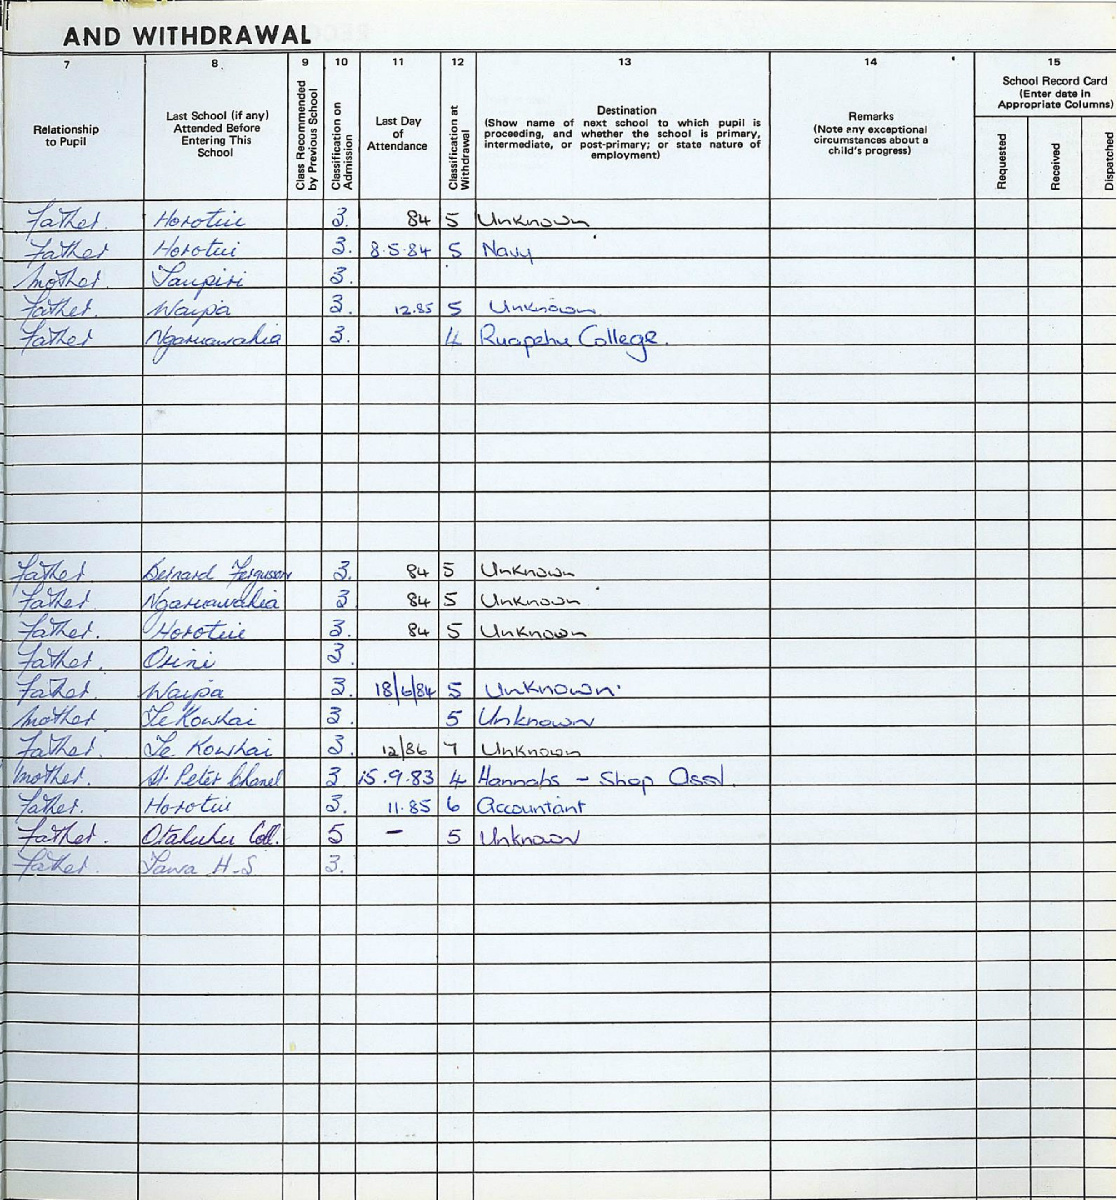 AND WITHDRAWAL
7 8 9 10 11 12 13 14 15
Relationship to Pupil
Last School (if any) Attended Before Entering This School
Class Recommended by Previous School
Classification on Admission
Last Day of Attendance
Classification at Withdrawal
Destination
(Show name of next school to which pupil is proceeding, and whether the school is primary, intermediate, or post-primary; or state nature of employment)
Remarks
(Note any exceptional circumstances about a child's progress)
School Record Card
(Enter date in Appropriate Columns)
Requested
Received
Dispatched
Father. Horotiu 3. 84 5 Unknown
Father Horotiu 3. 8.5.84 5 Navy
Mother. Taupiri 3.
Father. Waipa 3. 12.85 5 Unknown.
Father Ngaruawahia 3. 4 Ruapehu College.
Father Bernard Fergusson 3. 84 5 Unknown
Father. Ngaruawahia 3 84 5 Unknown
Father. Horotiu 3. 84 5 Unknown
Father. Orini 3.
Father. Waipa 3. 18/6/84 5 Unknown
Mother Te Kowhai 3. 5 Unknown
Father. Te Kowhai 3. 12/86 7 Unknown
Mother. St. Peter Chanel 3 15.9.83 4 Hannahs - Shop Asst.
Father. Horotiu 3. 11.85 6 Accountant
Father. Otahuhu Coll. 5 - 5 Unknown
Father. Tawa H.S 3.